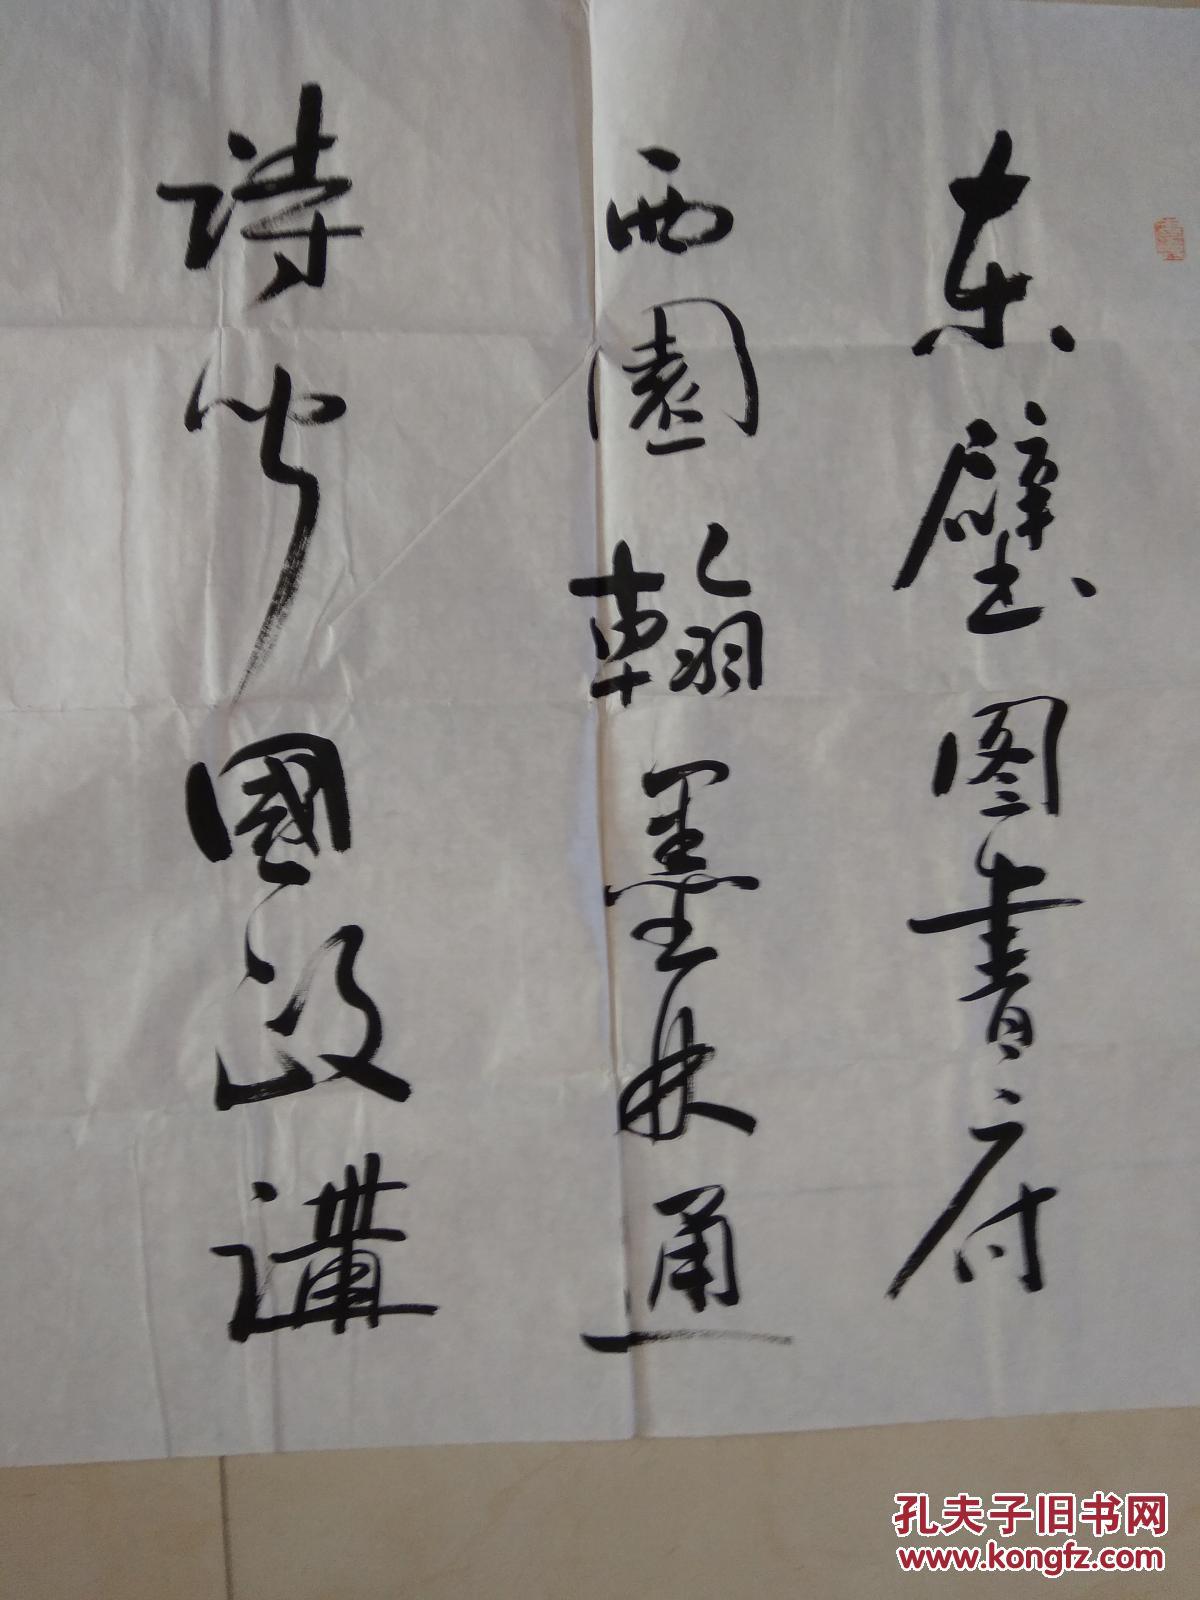 东壁图书府
西園翰墨林通
詩聞國政講
孔夫子旧书网
www.kongfz.com